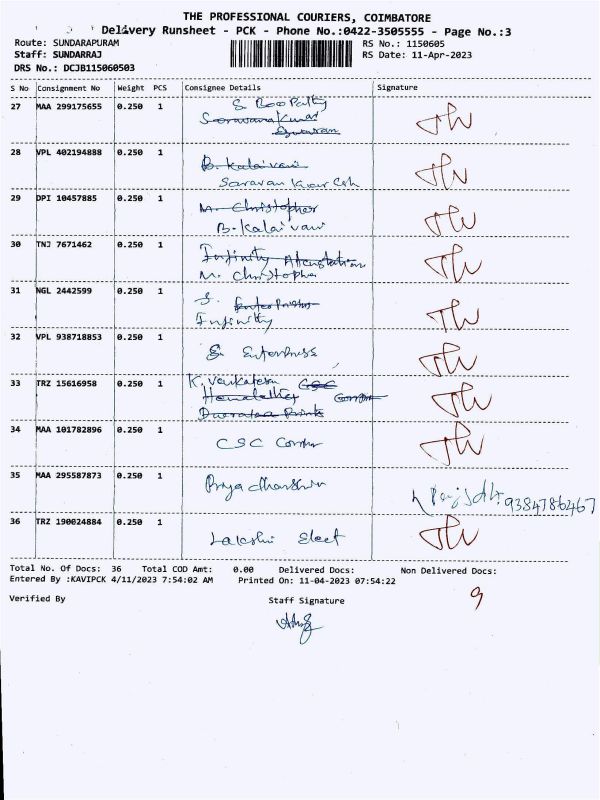 THE PROFESSIONAL COURIERS, COIMBATORE
Delivery Runsheet - PCK - Phone No.:0422-3505555 - Page No.:3
Route: SUNDARAPURAM
RS No.: 1150605
Staff: SUNDARRAJ
RS Date: 11-Apr-2023
DRS No.: DCJB115060503
S No Consignment No Weight PCS Consignee Details Signature
27 MAA 299175655 0.250 1 S. Boopathy
28 VPL 402194888 0.250 1 B. Kalaivani
Saravan Kumar
29 DPI 10457885 0.250 1 M. Christopher
B. Kalaivani
30 TNJ 7671462 0.250 1 Infinity
M. Christopher
31 NGL 2442599 0.250 1 S. Enterprises
Infinity
32 VPL 938718853 0.250 1 S. Enterprises
33 TRZ 15616958 0.250 1 K. Venkatesh CSC
34 MAA 101782896 0.250 1 CSC Comter
35 MAA 295587873 0.250 1 Priya dharshini
9384786467
36 TRZ 190024884 0.250 1 Lakshmi Elect
Total No. Of Docs: 36 Total COD Amt: 0.00 Delivered Docs: Non Delivered Docs:
Entered By :KAVIPCK 4/11/2023 7:54:02 AM Printed On: 11-04-2023 07:54:22
9
Verified By Staff Signature